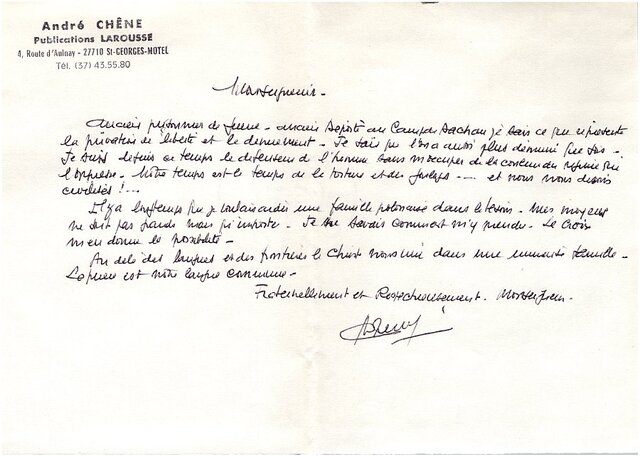 André CHÊNE
Publications LAROUSSE
4, Route d'Aulnay - 27710 St-GEORGES-MOTEL
Tél. (37) 43.55.80
Monseigneur -
Ancien prisonnier de guerre - ancien déporté au Camp de Dachau je sais ce que représente
la privation de liberté et le dénuement - Je sais que l'on a aussi plus démuni que soi -
Je suis depuis ce temps le défenseur de l'homme sans m'occuper de la couleur du régime qui
l'oppresse - Notre temps est le temps de la torture et des goulags --- et nous nous disons
civilisés !...
Il y a longtemps que je voulais aider une famille polonaise dans le besoin - Mes moyens
ne sont pas grands mais qu'importe - Je ne savais comment m'y prendre - La Croix
m'en donne la possibilité -
Au delà des langues et des frontières le Christ nous unit dans une immense famille -
La prière est notre langue commune -
Fraternellement et Respectueusement. Monseigneur.